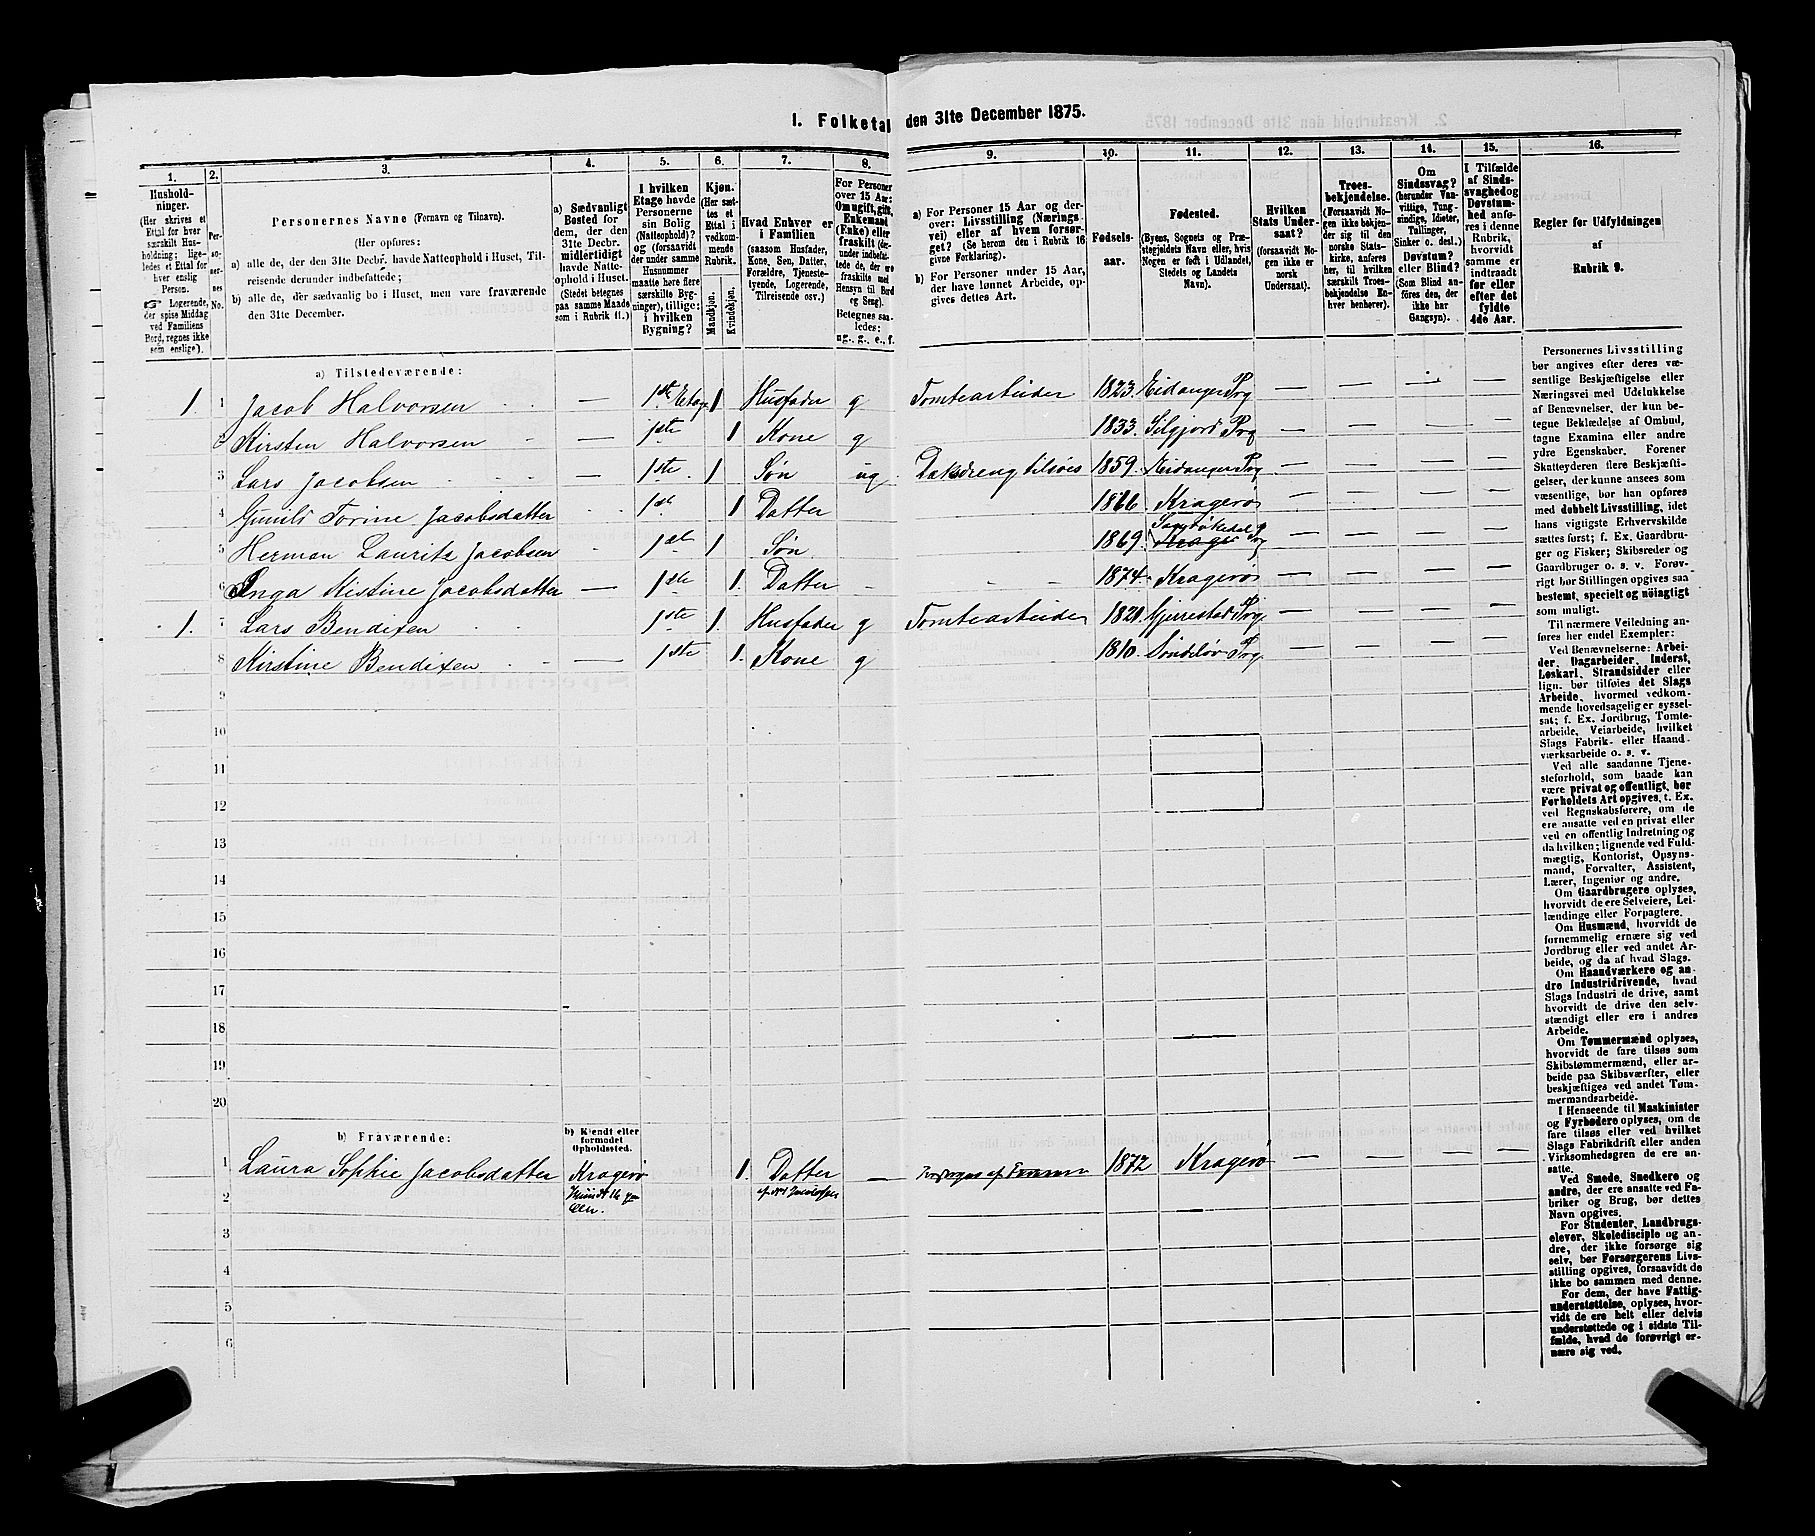 1. Folketal den 31te December 1875.
1.
Hushold-
ninger.
(Her skrives et
Ettal for hver
særskilt Hus-
holdning; lige-
ledes et Ettal for
hver enslig
Person.
☞ Logerende,
der spise Middag
ved Familiens
Bord, regnes ikke
som enslige).
2.
Per-
soner-
nes
No.
3.
Personernes Navne (Fornavn og Tilnavn).
(Her opføres:
a) alle de, der den 31te Decbr. havde Natteophold i Huset, Til-
reisende derunder indbefattede;
b) alle de, der sædvanlig bo i Huset, men vare fraværende
den 31te December.
4.
a) Sædvanligt
Bosted for
dem, der den
31te Decbr.
midlertidigt
havde Natte-
ophold i Huset.
(Stedet betegnes
paa samme Maade
som i Rubrik 11.)
5.
I hvilken
Etage havde
Personerne
sin Bolig
(Natteophold)?
og (forsaavidt
der under samme
Husnummer
maatte høre flere
særskilte Byg-
ninger), tillige:
i hvilken
Bygning?
6.
Kjøn.
(Her sæt-
tes et
Ettal i
vedkom-
mende
Rubrik.
Mandkjøn.
Kvindekjøn.
7.
Hvad Enhver er
i Familien
(saasom Husfader,
Kone, Søn, Datter,
Forældre, Tjeneste-
tyende, Logerende,
Tilreisende osv.)
8.
For Personer
over 15 Aar:
Om ugift, gift,
Enkemand
(Enke) eller
fraskilt
Betegnes saa-
ledes:
ug., g., e., f.
9.
a) For Personer 15 Aar og der-
over: Livsstilling (Nærings-
vei) eller af hvem forsør-
get? (Se herom den i Rubrik 16
givne Forklaring).
b) For Personer under 15 Aar,
der have lønnet Arbeide, op-
gives dettes Art.
10.
Fødsels-
aar.
11.
Fødested.
(Byens, Sognets og Præ-
stegjeldets Navn eller, hvis
Nogen er født i Udlandet,
Stedets og Landets
Navn).
12.
Hvilken
Stats Under-
saat?
(forsaavidt No-
gen ikke er
norsk
Undersaat).
13.
Troes-
bekjendelse.
(Forsaavidt No-
gen ikke bekjen-
der sig til den
norske Stats-
kirke, anføres
her, til hvilken
særskilt Troes-
bekjendelse En-
hver henhører).
14.
Om
Sindssvag?
(herunder Van-
vittige, Tung-
sindige, Idioter,
Tullinger,
Sinker o. desl.)
Døvstum?
eller Blind?
(Som Blind an-
føres den, der
ikke har
Gangsyn).
15.
I Tilfælde
af Sinds-
svaghed og
Døvstum-
hed anfø-
res i denne
Rubrik,
hvorvidt
samme er
indtraadt
før eller
efter det
fyldte
4de Aar.
16.
Regler for Udfyldningen
af
Rubrik 9.
a) Tilstedeværende:
1. 1 Jacob Halvorsen — 1ste Etage 1 Husfader g Tomtearbeider 1823. Eidanger Prg — — — —
2 Kirsten Halvorsen — 1ste 1 Kone g 1833. Silgjord Prg — — — —
3 Lars Jacobsen — 1ste 1 Søn ug Daksdreng tilsøes 1859. Eidanger Prg — — — —
4 Gunild Torine Jacobsdatter 1ste 1 Datter 1866. Kragerø — — — —
5 Herman Lauritz Jacobsen 1ste 1 Søn. 1869. Prg —
6 Inga Kistine Jacobsdatter — 1ste 1. Datter 1874. Kragerø — — — —
1. 7 Lars Bendixen 1ste 1. Husfader g Tomtearbeider 1821. Gjerrestad Prg. — — — —
8 Kirstine Bendixen — 1ste 1. Kone g 1810. Søndeløv Prg. — — — —
9
10
11
12
13
14
15
16
17
18
19
20
b) Fraværende:
b) Kjendt eller
formodet
Opholdssted.
1 Laura Sophie Jacobsdatter Kragerø 1. Datter — 1872 Kragerø — — — —
2
3
4
5
6
Personernes Livsstilling
bør angives efter deres væ-
sentlige Beskjæftigelse eller
Næringsvei med Udelukkelse
af Benævnelser, der kun be-
tegne Beklædelse af Ombud,
tagne Examina eller andre
ydre Egenskaber. Forener
Skatteyderen flere Beskjæfti-
gelser, der kunne ansees som
væsentlige, bør han opføres
med dobbelt Livsstilling, idet
hans vigtigste Erhvervskilde
sættes først; f. Ex. Gaardbru-
ger og Fisker; Skibsreder og
Gaardbruger o. s. v. Forøv-
rigt bør Stillingen opgives saa
bestemt, specielt og nøiagtigt
som muligt.
Til nærmere Veiledning an-
føres her endel Exempler:
Ved Benævnelserne: Arbei-
der, Dagarbeider, Inderst,
Løskarl, Strandsidder eller
lign. bør tilføies det Slags
Arbeide, hvormed vedkom-
mende hovedsagelig er syssel-
sat; f. Ex. Jordbrug, Tomte-
arbeide, Veiarbeide, hvilket
Slags Fabrik- eller Haand-
værksarbeide o. s. v.
Ved alle saadanne Tjene-
steforhold, som baade kan
være privat og offentligt, bør
Forholdets Art opgives, t. Ex.
ved Regnskabsførere, om de
ere ansatte ved en privat eller
ved en offentlig Indretning og
da hvilken; lignende ved Fuld-
mægtig, Kontorist, Opsyns-
mand, Forvalter, Assistent,
Lærer, Ingeniør og andre.
Om Gaardbrugere oplyses,
hvorvidt de ere Selveiere, Lei-
lændinge eller Forpagtere.
Om Husmænd, hvorvidt de
fornemmelig ernære sig ved
Jordbrug eller ved andet Ar-
beide, og da af hvad Slags.
Om Haandværkere og an-
dre Industridrivende, hvad
Slags Industri de drive, samt
hvorvidt de drive den selv-
stændigt eller ere i andres
Arbeide.
Om Tømmermænd oplyses,
hvorvidt de fare tilsøs som
Skibstømmermænd, eller ar-
beide paa Skibsværfter, eller
beskjæftiges ved andet Tøm-
mermandsarbeide.
I Henseende til Maskinister
og Fyrbødere oplyses, om de
fare tilsøs eller ved hvilket
Slags Fabrikdrift eller anden
Virksomhedsgren de ere an-
satte.
Ved Smede, Snedkere og
andre, der ere ansatte ved Fa-
briker og Brug, bør dettes
Navn opgives.
For Studenter, Landbrugs-
elever, Skoledisciple og an-
dre, der ikke forsørge sig
selv, bør Forsørgerens Livs-
stilling opgives, forsaavidt de
ikke bo sammen med denne.
For dem, der have Fattig-
understøttelse, oplyses, hvor-
vidt de ere helt eller delvis
understøttede og i sidste Til-
fælde, hvad de forøvrigt er-
nære sig ved.